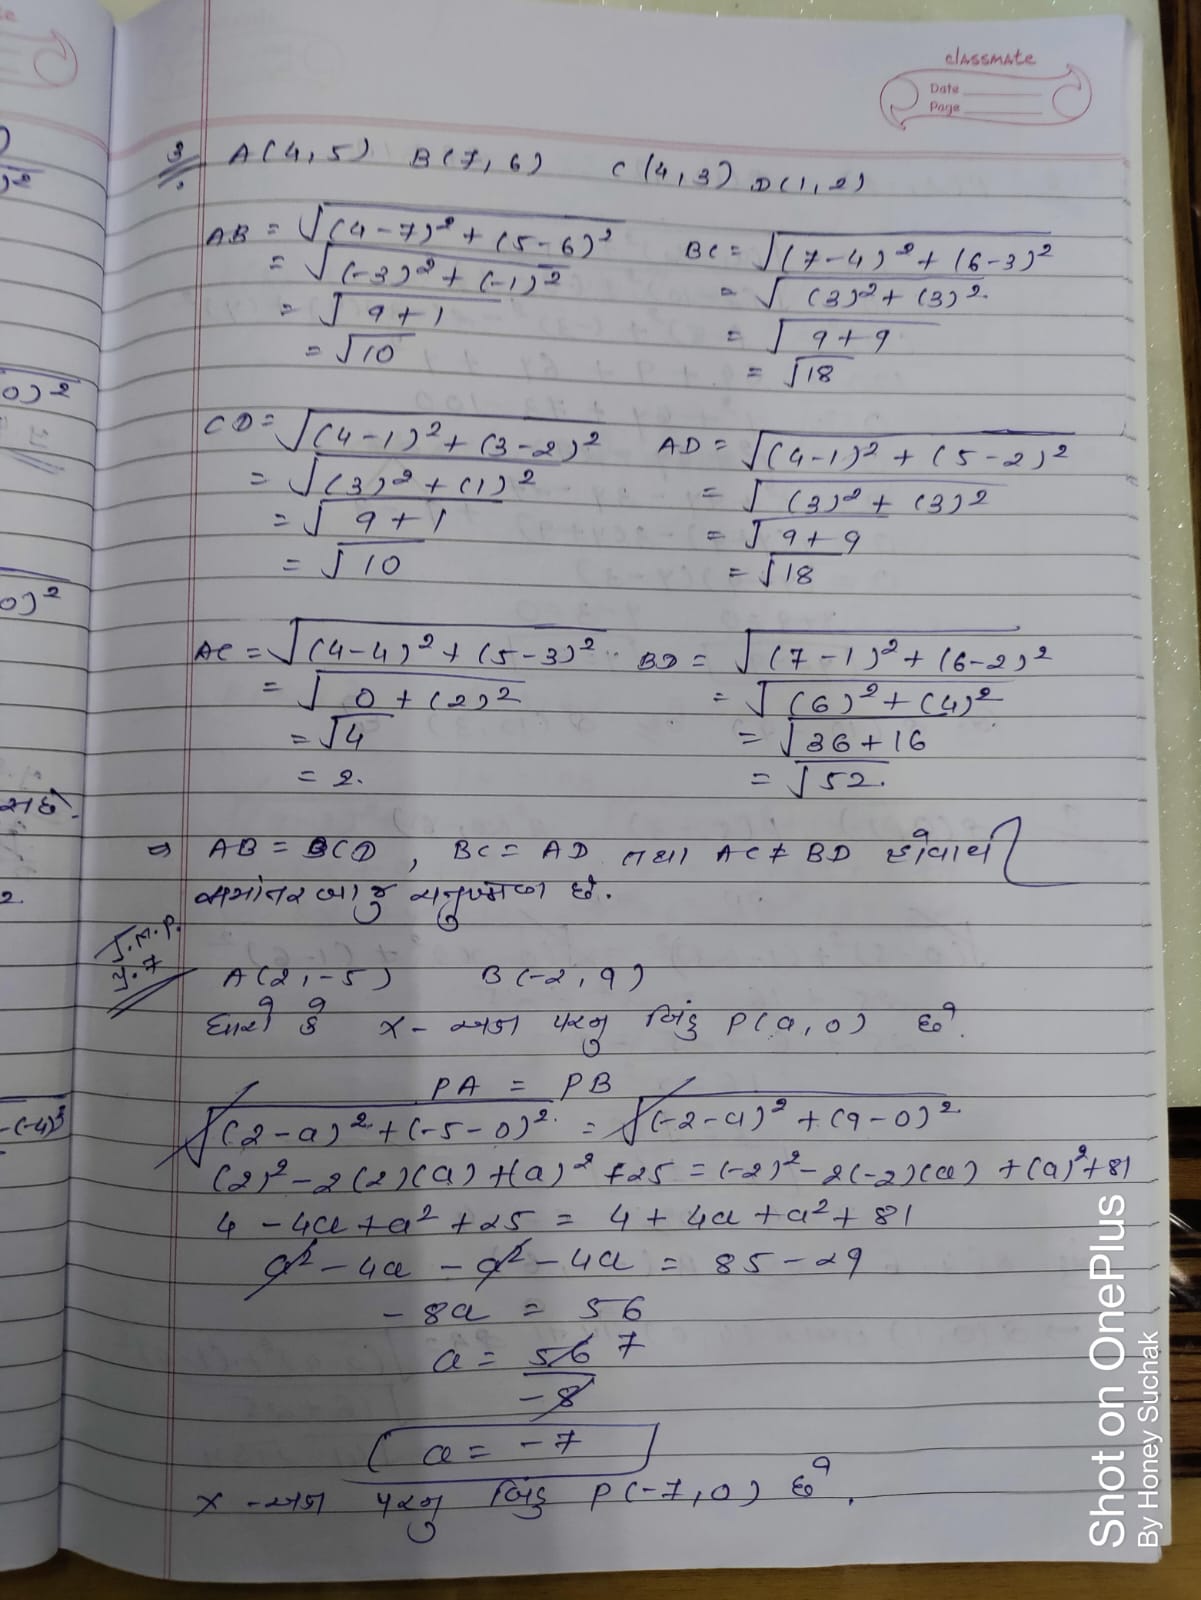 classmate
Date
Page
3 A(4,5) B(7,6) C(4,3) D(1,2)
AB = √(4-7)² + (5-6)² BC = √(7-4)² + (6-3)²
= √(-3)² + (-1)² = √(3)² + (3)²
= √9+1 = √9+9
= √10 = √18
CD = √(4-1)² + (3-2)² AD = √(4-1)² + (5-2)²
= √(3)² + (1)² = √(3)² + (3)²
= √9+1 = √9+9
= √10 = √18
AC = √(4-4)² + (5-3)² BD = √(7-1)² + (6-2)²
= √0 + (2)² = √(6)² + (4)²
= √4 = √36+16
= 2. = √52.
⇒ AB = CD, BC = AD તથા AC ≠ BD હોવાથી
સમાંતર બાજુ ચતુષ્કોણ છે.
I.M.P.
7
A(2,-5) B(-2,9)
ધારો કે x-અક્ષ પરનું બિંદુ P(a,0) છે.
PA = PB
√(2-a)² + (-5-0)² = √(-2-a)² + (9-0)²
(2)² - 2(2)(a) + (a)² + 25 = (-2)² - 2(-2)(a) + (a)² + 81
4 - 4a + a² + 25 = 4 + 4a + a² + 81
a² - 4a - a² - 4a = 85 - 29
-8a = 56
a = 56 7
-8
a = -7
x-અક્ષ પરનું બિંદુ P(-7,0) છે.
Shot on OnePlus
By Honey Suchak